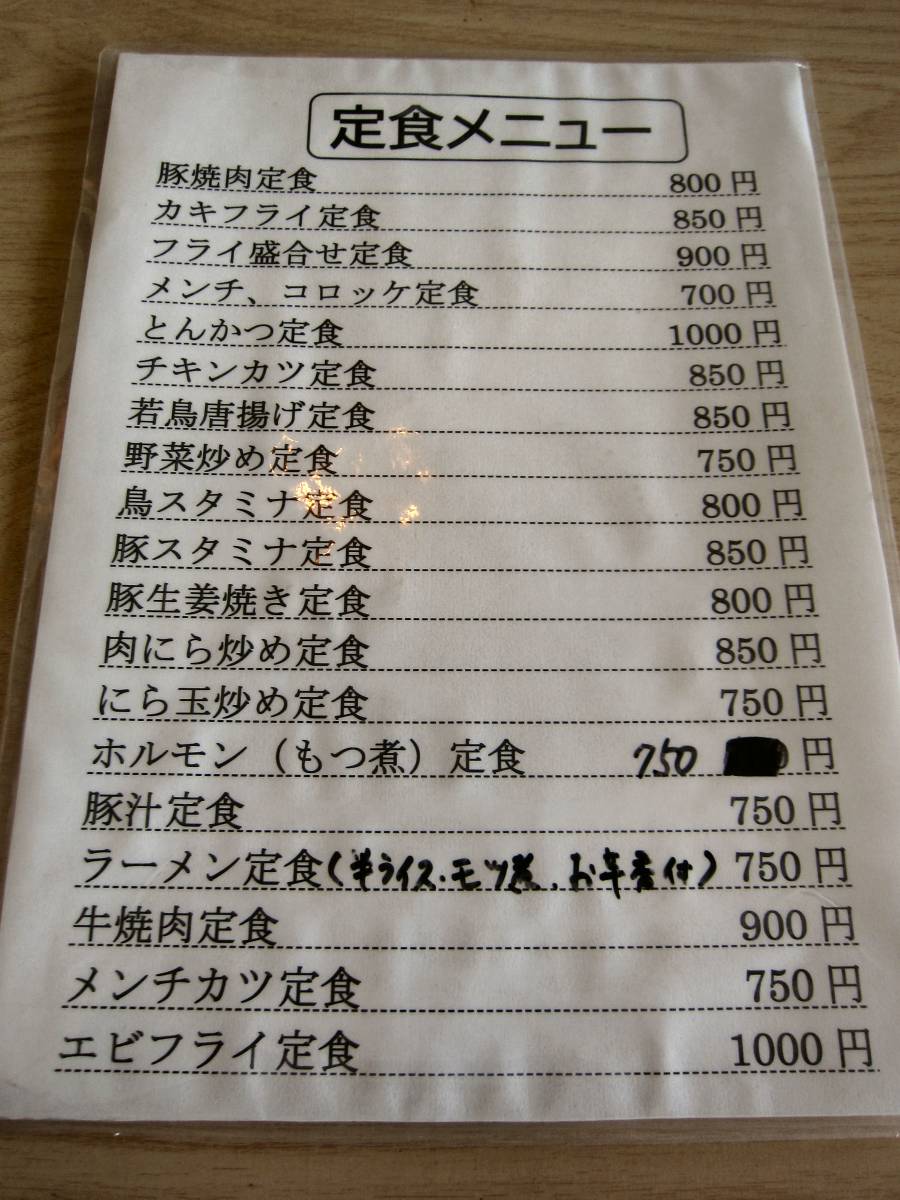 定食メニュー
豚焼肉定食 800円
カキフライ定食 850円
フライ盛合せ定食 900円
メンチ、コロッケ定食 700円
とんかつ定食 1000円
チキンカツ定食 850円
若鳥唐揚げ定食 850円
野菜炒め定食 750円
鳥スタミナ定食 800円
豚スタミナ定食 850円
豚生姜焼き定食 800円
肉にら炒め定食 850円
にら玉炒め定食 750円
ホルモン（もつ煮）定食 750 円
豚汁定食 750円
ラーメン定食(半ライス・モツ煮、お新香付) 750円
牛焼肉定食 900円
メンチカツ定食 750円
エビフライ定食 1000円